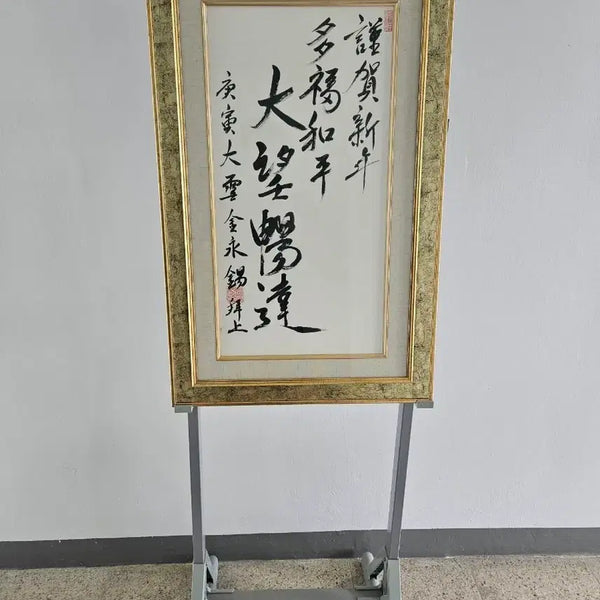 謹賀新年
多福和平
大望暢達
庚寅大雲金永錫拜上